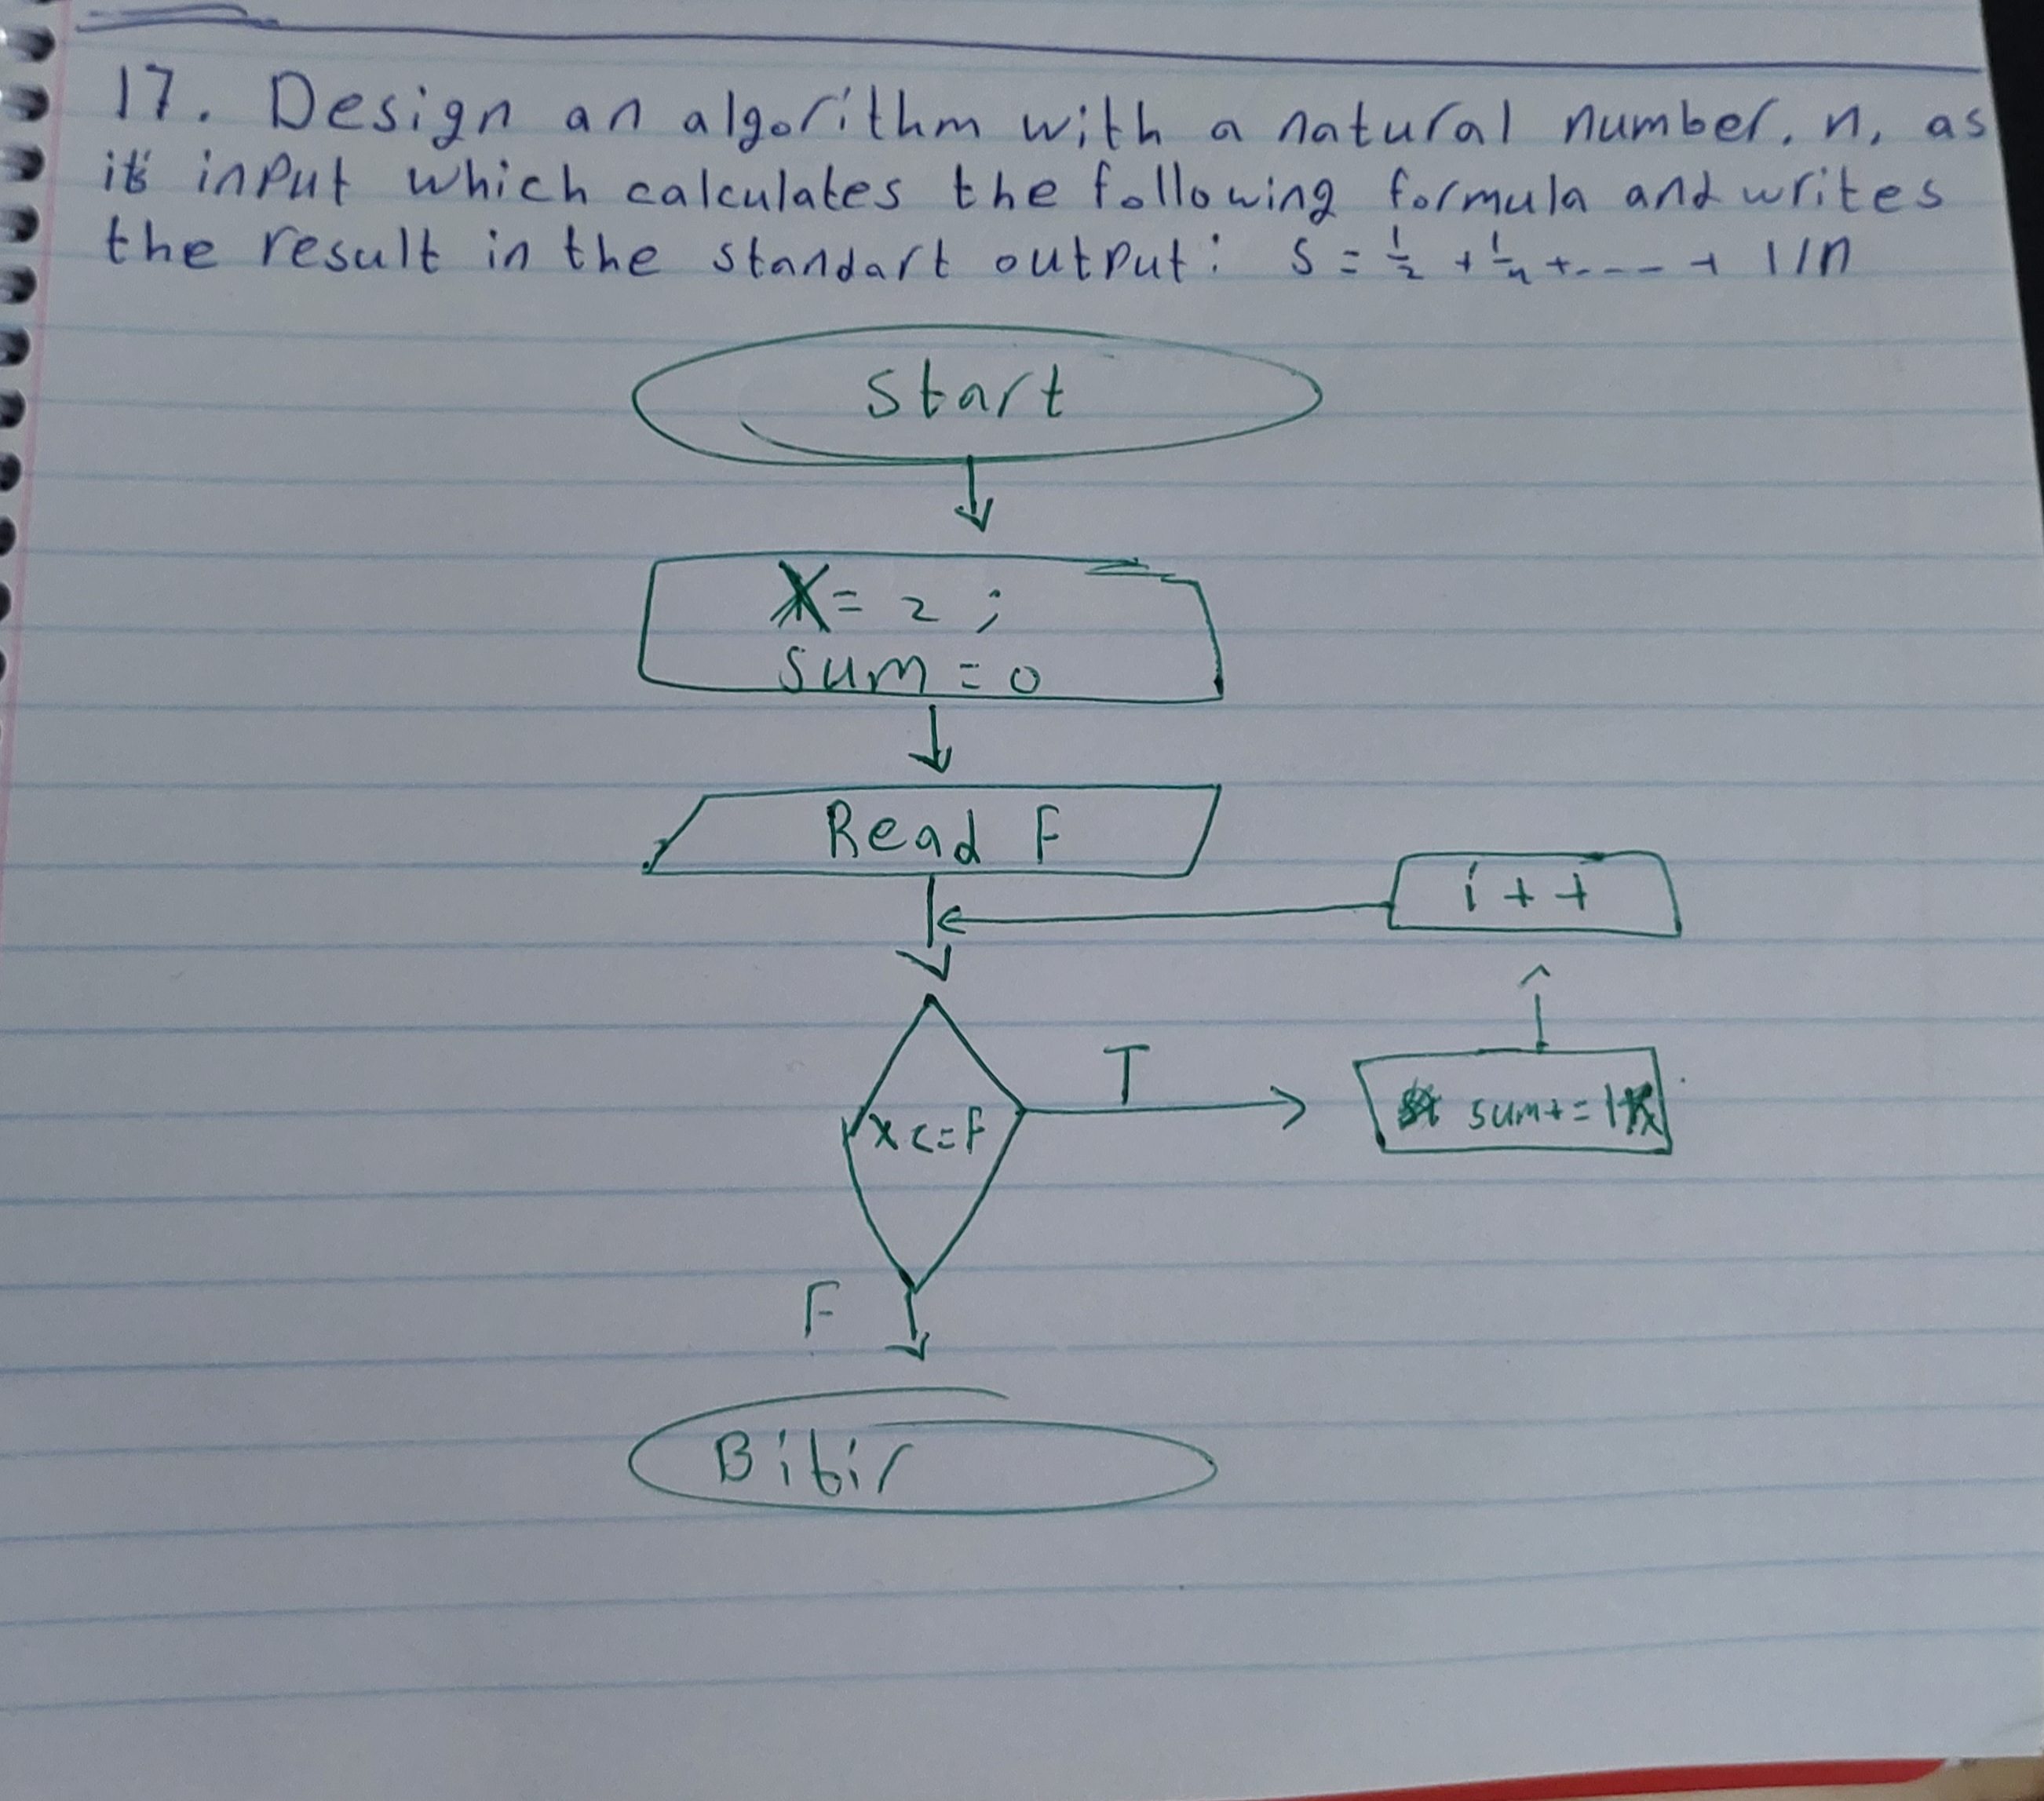 17. Design an algorithm with a natural number, n, as
it's input which calculates the following formula and writes
the result in the standart output: S = 1/2 + 1/4 + .... + 1/n
Start
X = 2 ;
sum = 0
Read F
i + +
T
X <= F
sum+= 1
F
Bitir